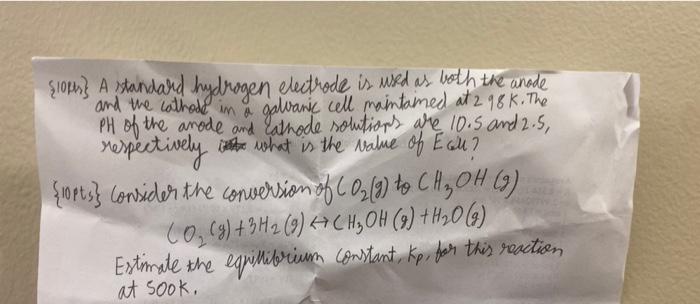 {10pts} A standard hydrogen electrode is used as both the anode
and the cathode in a galvanic cell maintained at 298K. The
PH of the anode and cathode solutions are 10.5 and 2.5,
respectively what is the value of Ecell?
{10pts} Consider the conversion of CO₂(g) to CH₃OH (g)
CO₂(g) + 3H₂(g) ↔ CH₃OH (g) + H₂O(g)
Estimate the equilibrium constant, Kp, for this reaction
at 500K.